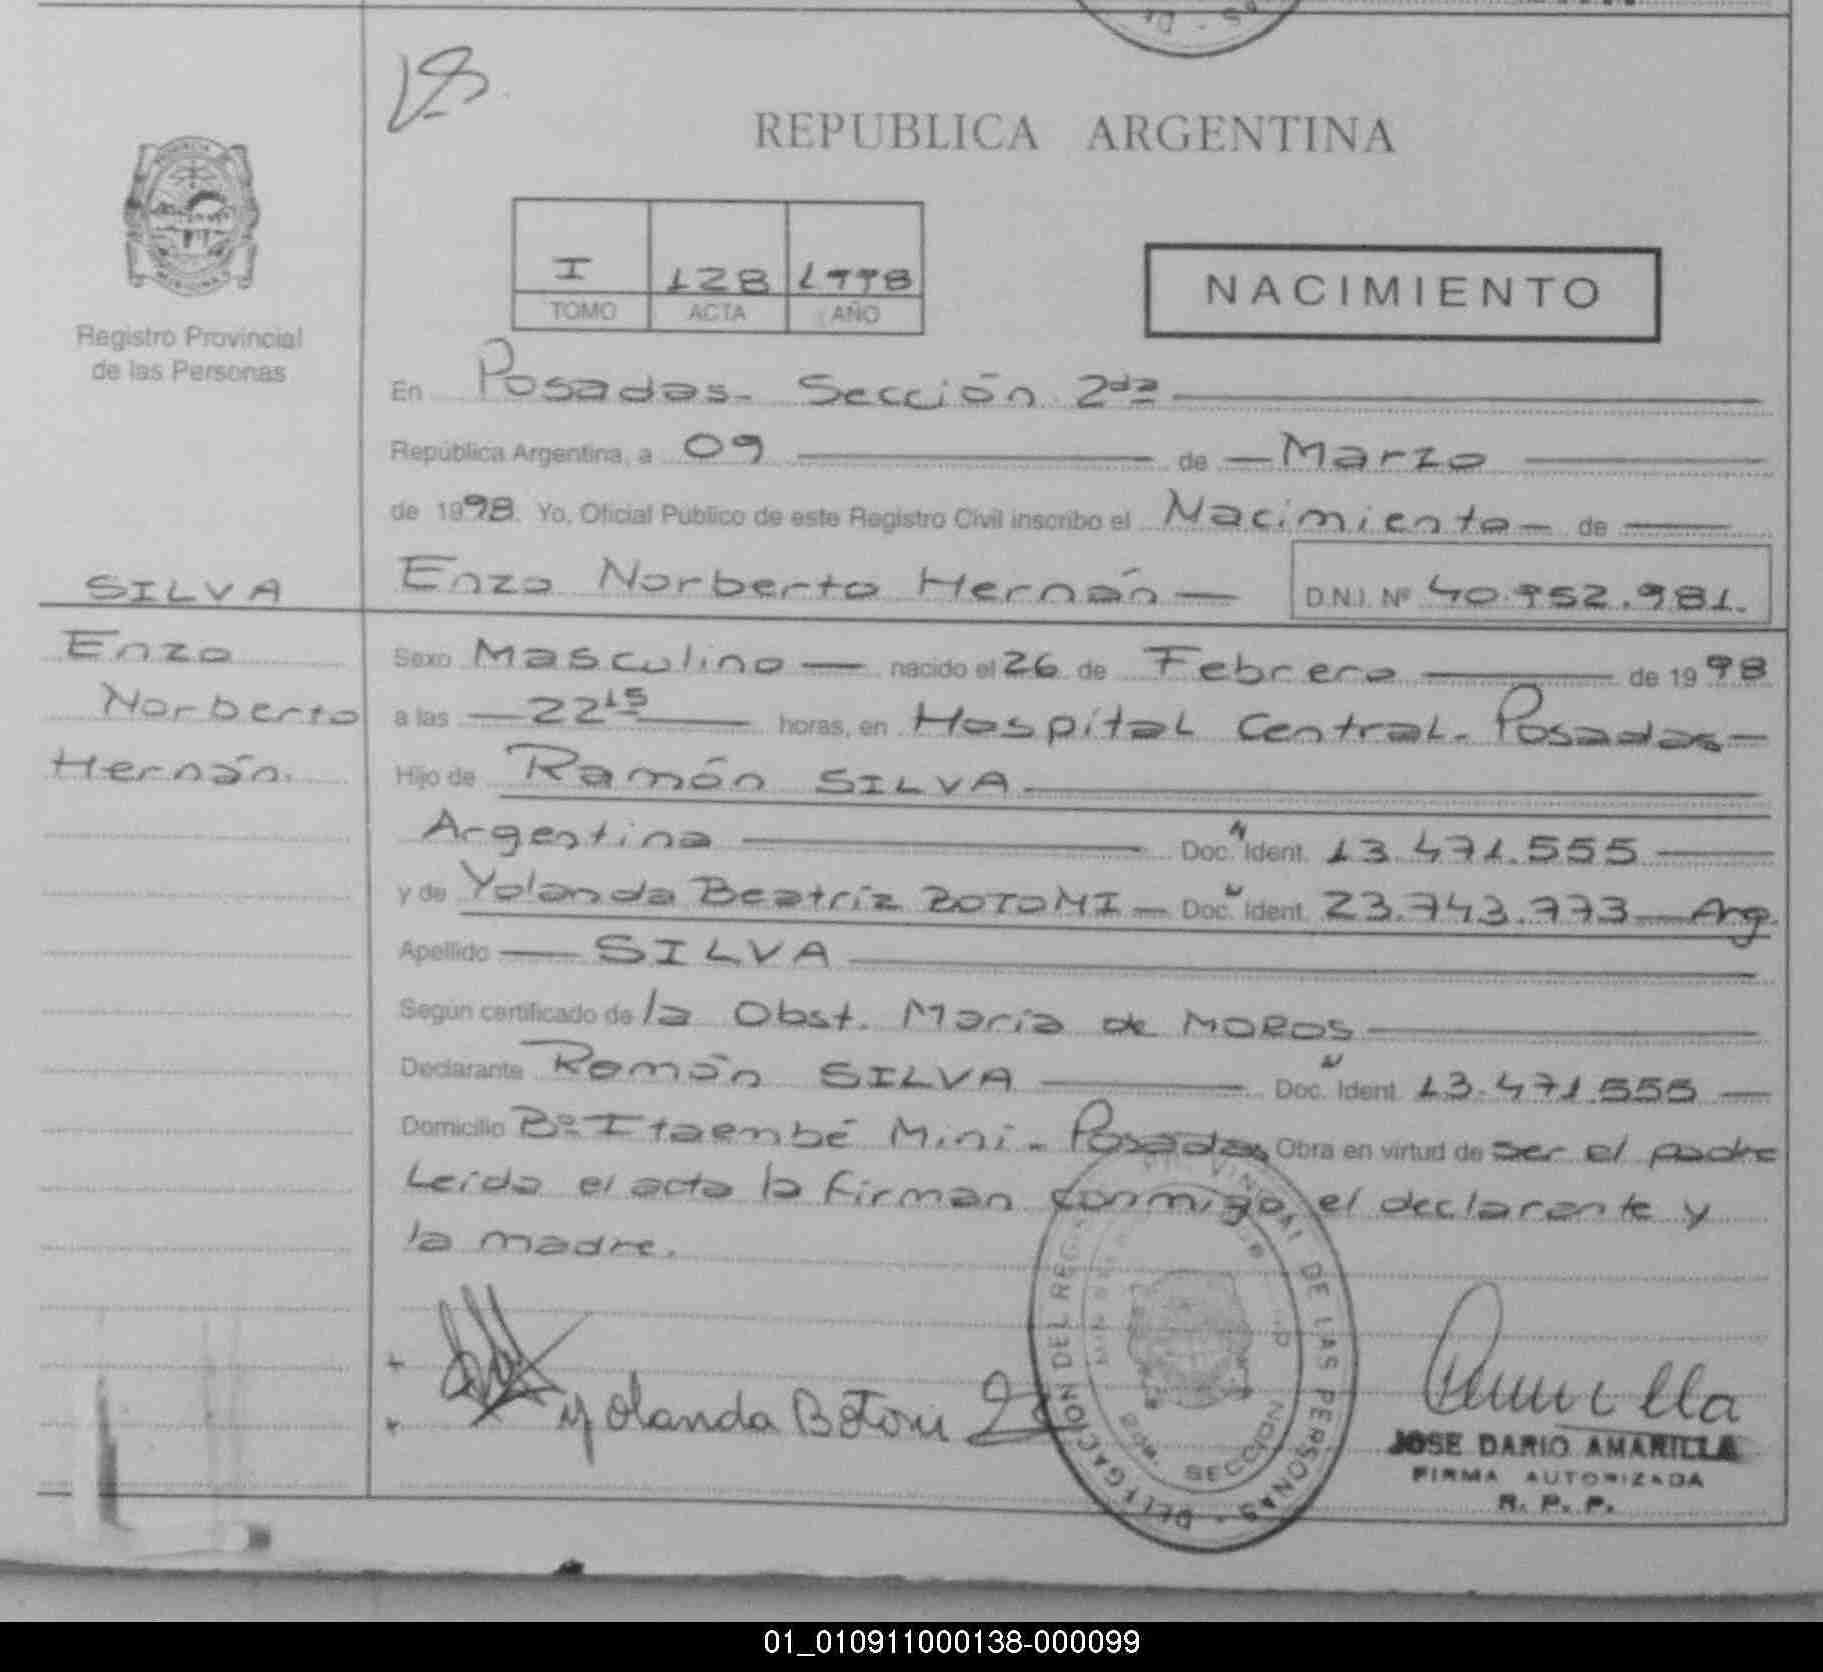 128
REPUBLICA ARGENTINA
I 128 1998
TOMO ACTA AÑO
NACIMIENTO
Registro Provincial
de las Personas
En Posadas - Sección 2da
República Argentina, a 09 de Marzo
de 1998. Yo, Oficial Público de este Registro Civil inscribo el Nacimiento de
SILVA
Enzo Norberto Hernán
Enzo Norberto Hernán D.N.I. Nº 40.952.981.
Sexo Masculino nacido el 26 de Febrero de 1998
a las 22 15 horas, en Hospital Central - Posadas
Hijo de Ramón SILVA
Argentina Doc. Ident. 13.471.555
y de Yolanda Beatríz BOTOMI Doc. Ident. 23.743.773 Arg.
Apellido SILVA
Según certificado de la Obst. María de MOROS
Declarante Ramón SILVA Doc. Ident. 13.471.555
Domicilio Bº Itaembé Miní - Posadas Obra en virtud de ser el padre
Leída el acta la firman conmigo el declarante y
la madre.
Yolanda Botomi
DELEGACION DEL REG. PROVINCIAL DE LAS PERSONAS
SECCION
JOSE DARIO AMARILLA
FIRMA AUTORIZADA
R. P. P.
01_010911000138-000099